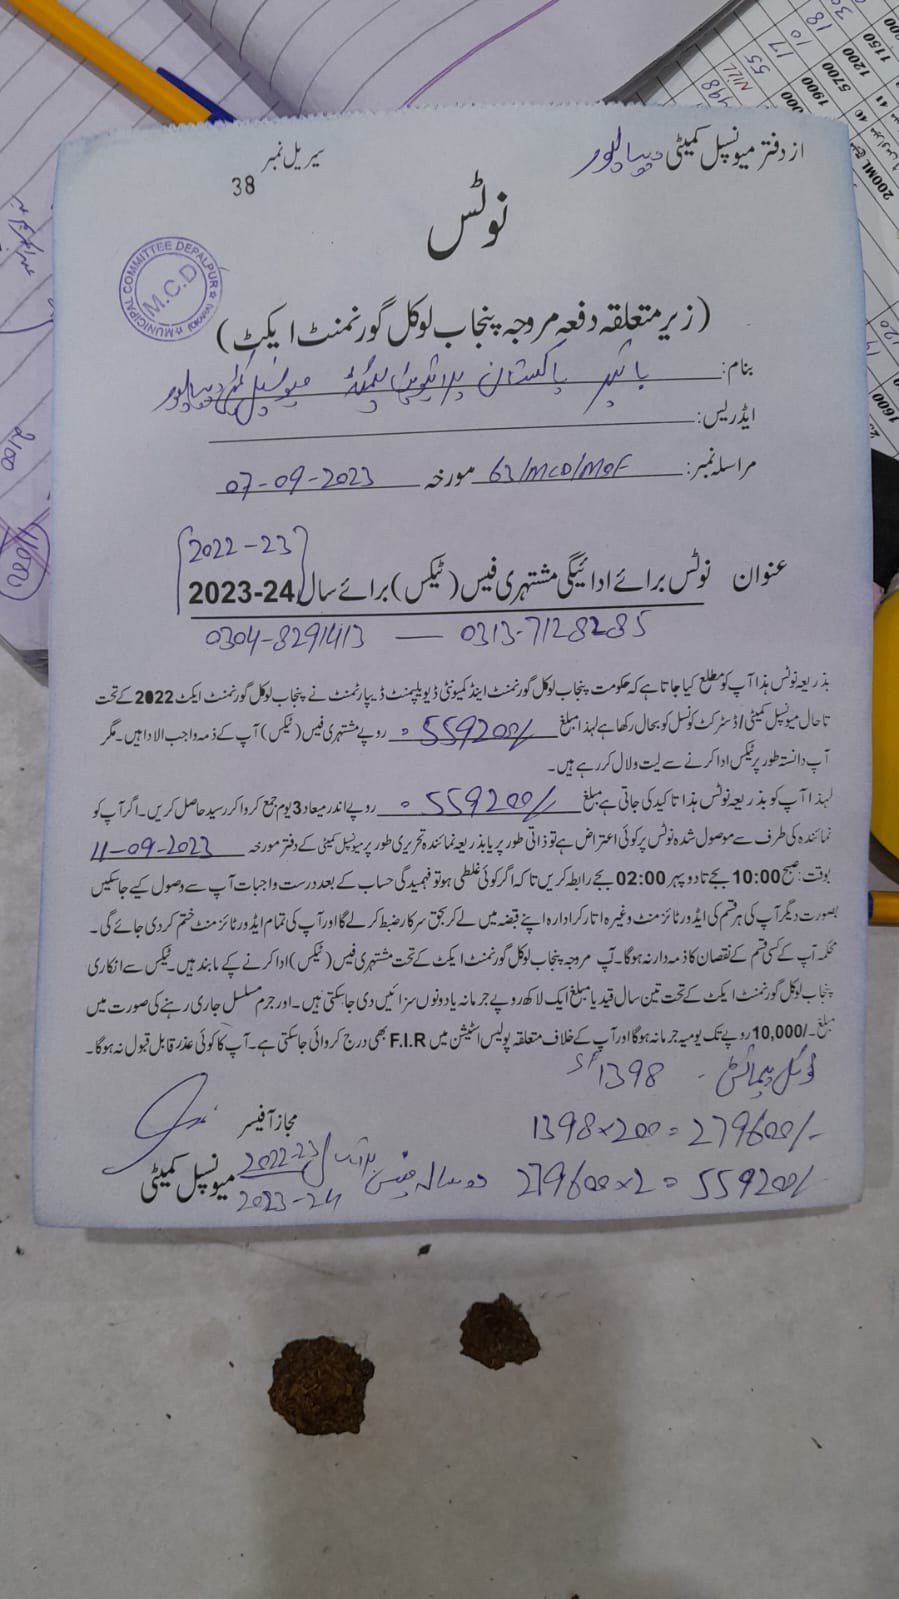 از دفتر میونسپل کمیٹی دیپالپور
سیریل نمبر
38
نوٹس
MUNICIPAL COMMITTEE DEPALPUR
M.C.D
(زیر متعلقہ دفعہ مروجہ پنجاب لوکل گورنمنٹ ایکٹ)
بنام: پاکستان پرائیویٹ لمیٹڈ میونسپل کمیٹی دیپالپور
ایڈریس:
مراسلہ نمبر: 63/MCD/MOF مورخہ 07-09-2023
2022-23
عنوان نوٹس برائے ادائیگی مشتہری فیس (ٹیکس) برائے سال 2023-24
0304-8291413 — 0313-7128285
بذریعہ نوٹس ہذا آپ کو مطلع کیا جاتا ہے کہ حکومت پنجاب لوکل گورنمنٹ اینڈ کمیونٹی ڈیویلپمنٹ ڈیپارٹمنٹ نے پنجاب لوکل گورنمنٹ ایکٹ 2022 کے تحت
تا حال میونسپل کمیٹی/ڈسٹرکٹ کونسل کو بحال رکھا ہے لہذا مبلغ 559200/- روپے مشتہری فیس (ٹیکس) آپ کے ذمہ واجب الادا ہیں۔ مگر
آپ دانستہ طور پر ٹیکس ادا کرنے سے لیت و لال کر رہے ہیں۔
لہذا آپ کو بذریعہ نوٹس ہذا تاکید کی جاتی ہے مبلغ 559200/- روپے اندر میعاد 3 یوم جمع کروا کر رسید حاصل کریں۔ اگر آپ کو
نمائندہ کی طرف سے موصول شدہ نوٹس پر کوئی اعتراض ہے تو ذاتی طور پر یا بذریعہ نمائندہ تحریری طور پر میونسپل کمیٹی کے دفتر مورخہ 11-09-2023
بوقت: صبح 10:00 بجے تا دوپہر 02:00 بجے رابطہ کریں تاکہ اگر کوئی غلطی ہو تو فہمیدگی حساب کے بعد درست واجبات آپ سے وصول کیے جا سکیں
بصورت دیگر آپ کی ہر قسم کی ایڈورٹائزمنٹ وغیرہ اتار کر ادارہ اپنے قبضہ میں لے کر بحق سرکار ضبط کر لے گا اور آپ کی تمام ایڈورٹائزمنٹ ختم کر دی جائے گی۔
محکمہ آپ کے کسی قسم کے نقصان کا ذمہ دار نہ ہوگا۔ آپ مروجہ پنجاب لوکل گورنمنٹ ایکٹ کے تحت مشتہری فیس (ٹیکس) ادا کرنے کے پابند ہیں۔ ٹیکس سے انکاری
پنجاب لوکل گورنمنٹ ایکٹ کے تحت تین سال قید یا مبلغ ایک لاکھ روپے جرمانہ یا دونوں سزائیں دی جا سکتی ہیں۔ اور جرم مسلسل جاری رہنے کی صورت میں
مبلغ -/10,000 روپے تک یومیہ جرمانہ ہوگا اور آپ کے خلاف متعلقہ پولیس اسٹیشن میں F.I.R بھی درج کروائی جا سکتی ہے۔ آپ کا کوئی عذر قابل قبول نہ ہوگا۔
ٹوٹل پیمائش - 1398 Sf
1398×200=279600/-
مجاز آفیسر
279600×2=559200/-
دو سالہ فیس برائے سال 2022-23
2023-24
میونسپل کمیٹی
200ML
5700
1900
1200
1150
1600
NILL
55
17
10
18
2100